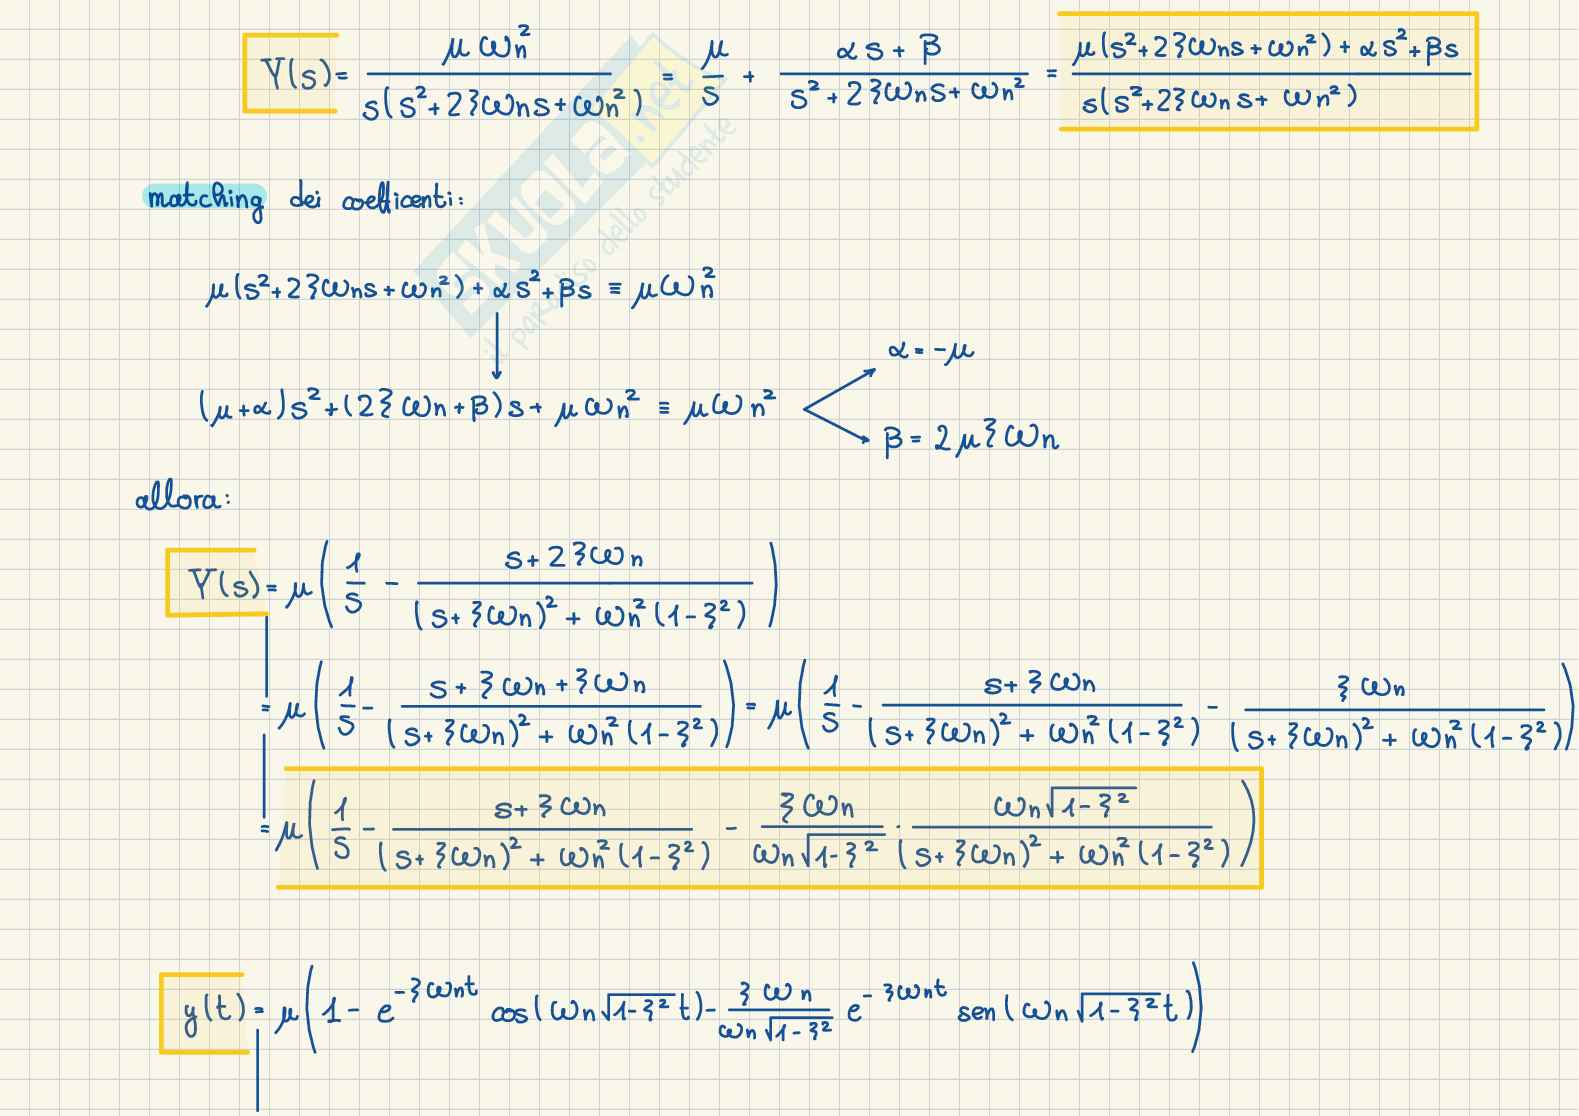 Y(s) = μωn² / s(s²+2ξωns+ωn²) = μ/s + (αs+β) / (s²+2ξωns+ωn²) = (μ(s²+2ξωns+ωn²)+αs²+βs) / s(s²+2ξωns+ωn²)
matching dei coefficenti:
μ(s²+2ξωns+ωn²)+αs²+βs ≡ μωn²
α = -μ
(μ+α)s²+(2ξωn+β)s+μωn² ≡ μωn²
β = 2μξωn
allora:
Y(s) = μ( 1/s - (s+2ξωn) / ((s+ξωn)²+ωn²(1-ξ²)) )
= μ( 1/s - (s+ξωn+ξωn) / ((s+ξωn)²+ωn²(1-ξ²)) ) = μ( 1/s - (s+ξωn) / ((s+ξωn)²+ωn²(1-ξ²)) - ξωn / ((s+ξωn)²+ωn²(1-ξ²)) )
= μ( 1/s - (s+ξωn) / ((s+ξωn)²+ωn²(1-ξ²)) - ξωn / ωn√(1-ξ²) · ωn√(1-ξ²) / ((s+ξωn)²+ωn²(1-ξ²)) )
y(t) = μ( 1 - e^(-ξωnt) cos(ωn√(1-ξ²)t) - ξωn / ωn√(1-ξ²) e^(-ξωnt) sen(ωn√(1-ξ²)t) )
SKUOLA.net
il paradiso dello studente